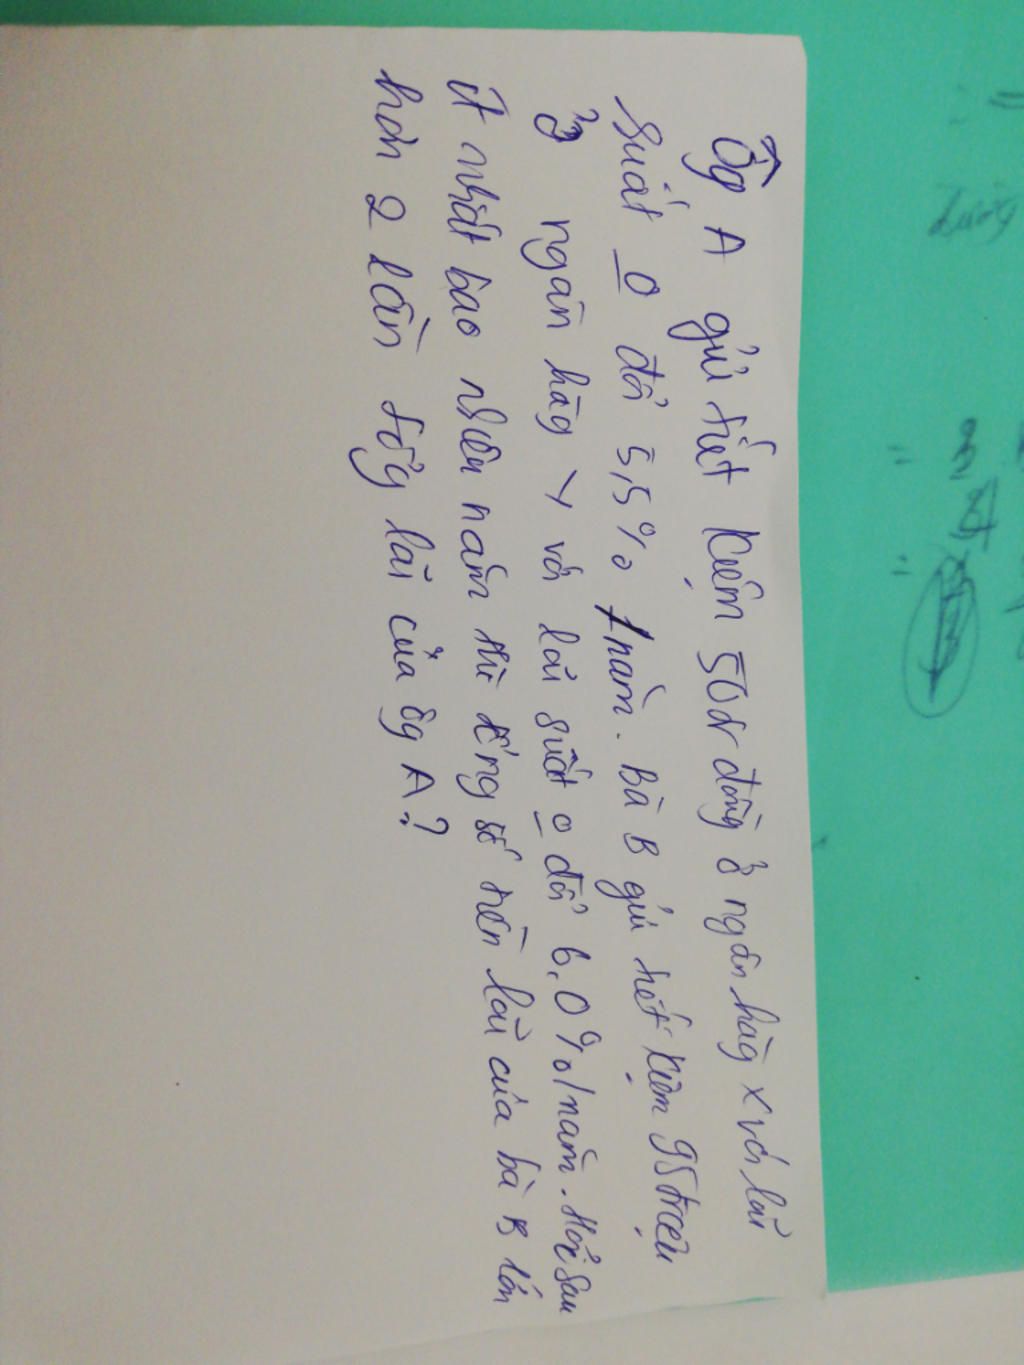 Ôg A gửi tiết kiệm 50tr đồng ở ngân hàg X với lãi
suất o đổi 5,5% /năm. Bà B gửi tiết kiệm 95 triệu
ở ngân hàg Y với lãi suất o đổi 6,0%/năm. Hỏi sau
ít nhất bao nhiêu năm thì tổng số tiền lãi của bà B lớn
hơn 2 lần tổg lãi của ôg A?
= 3
=